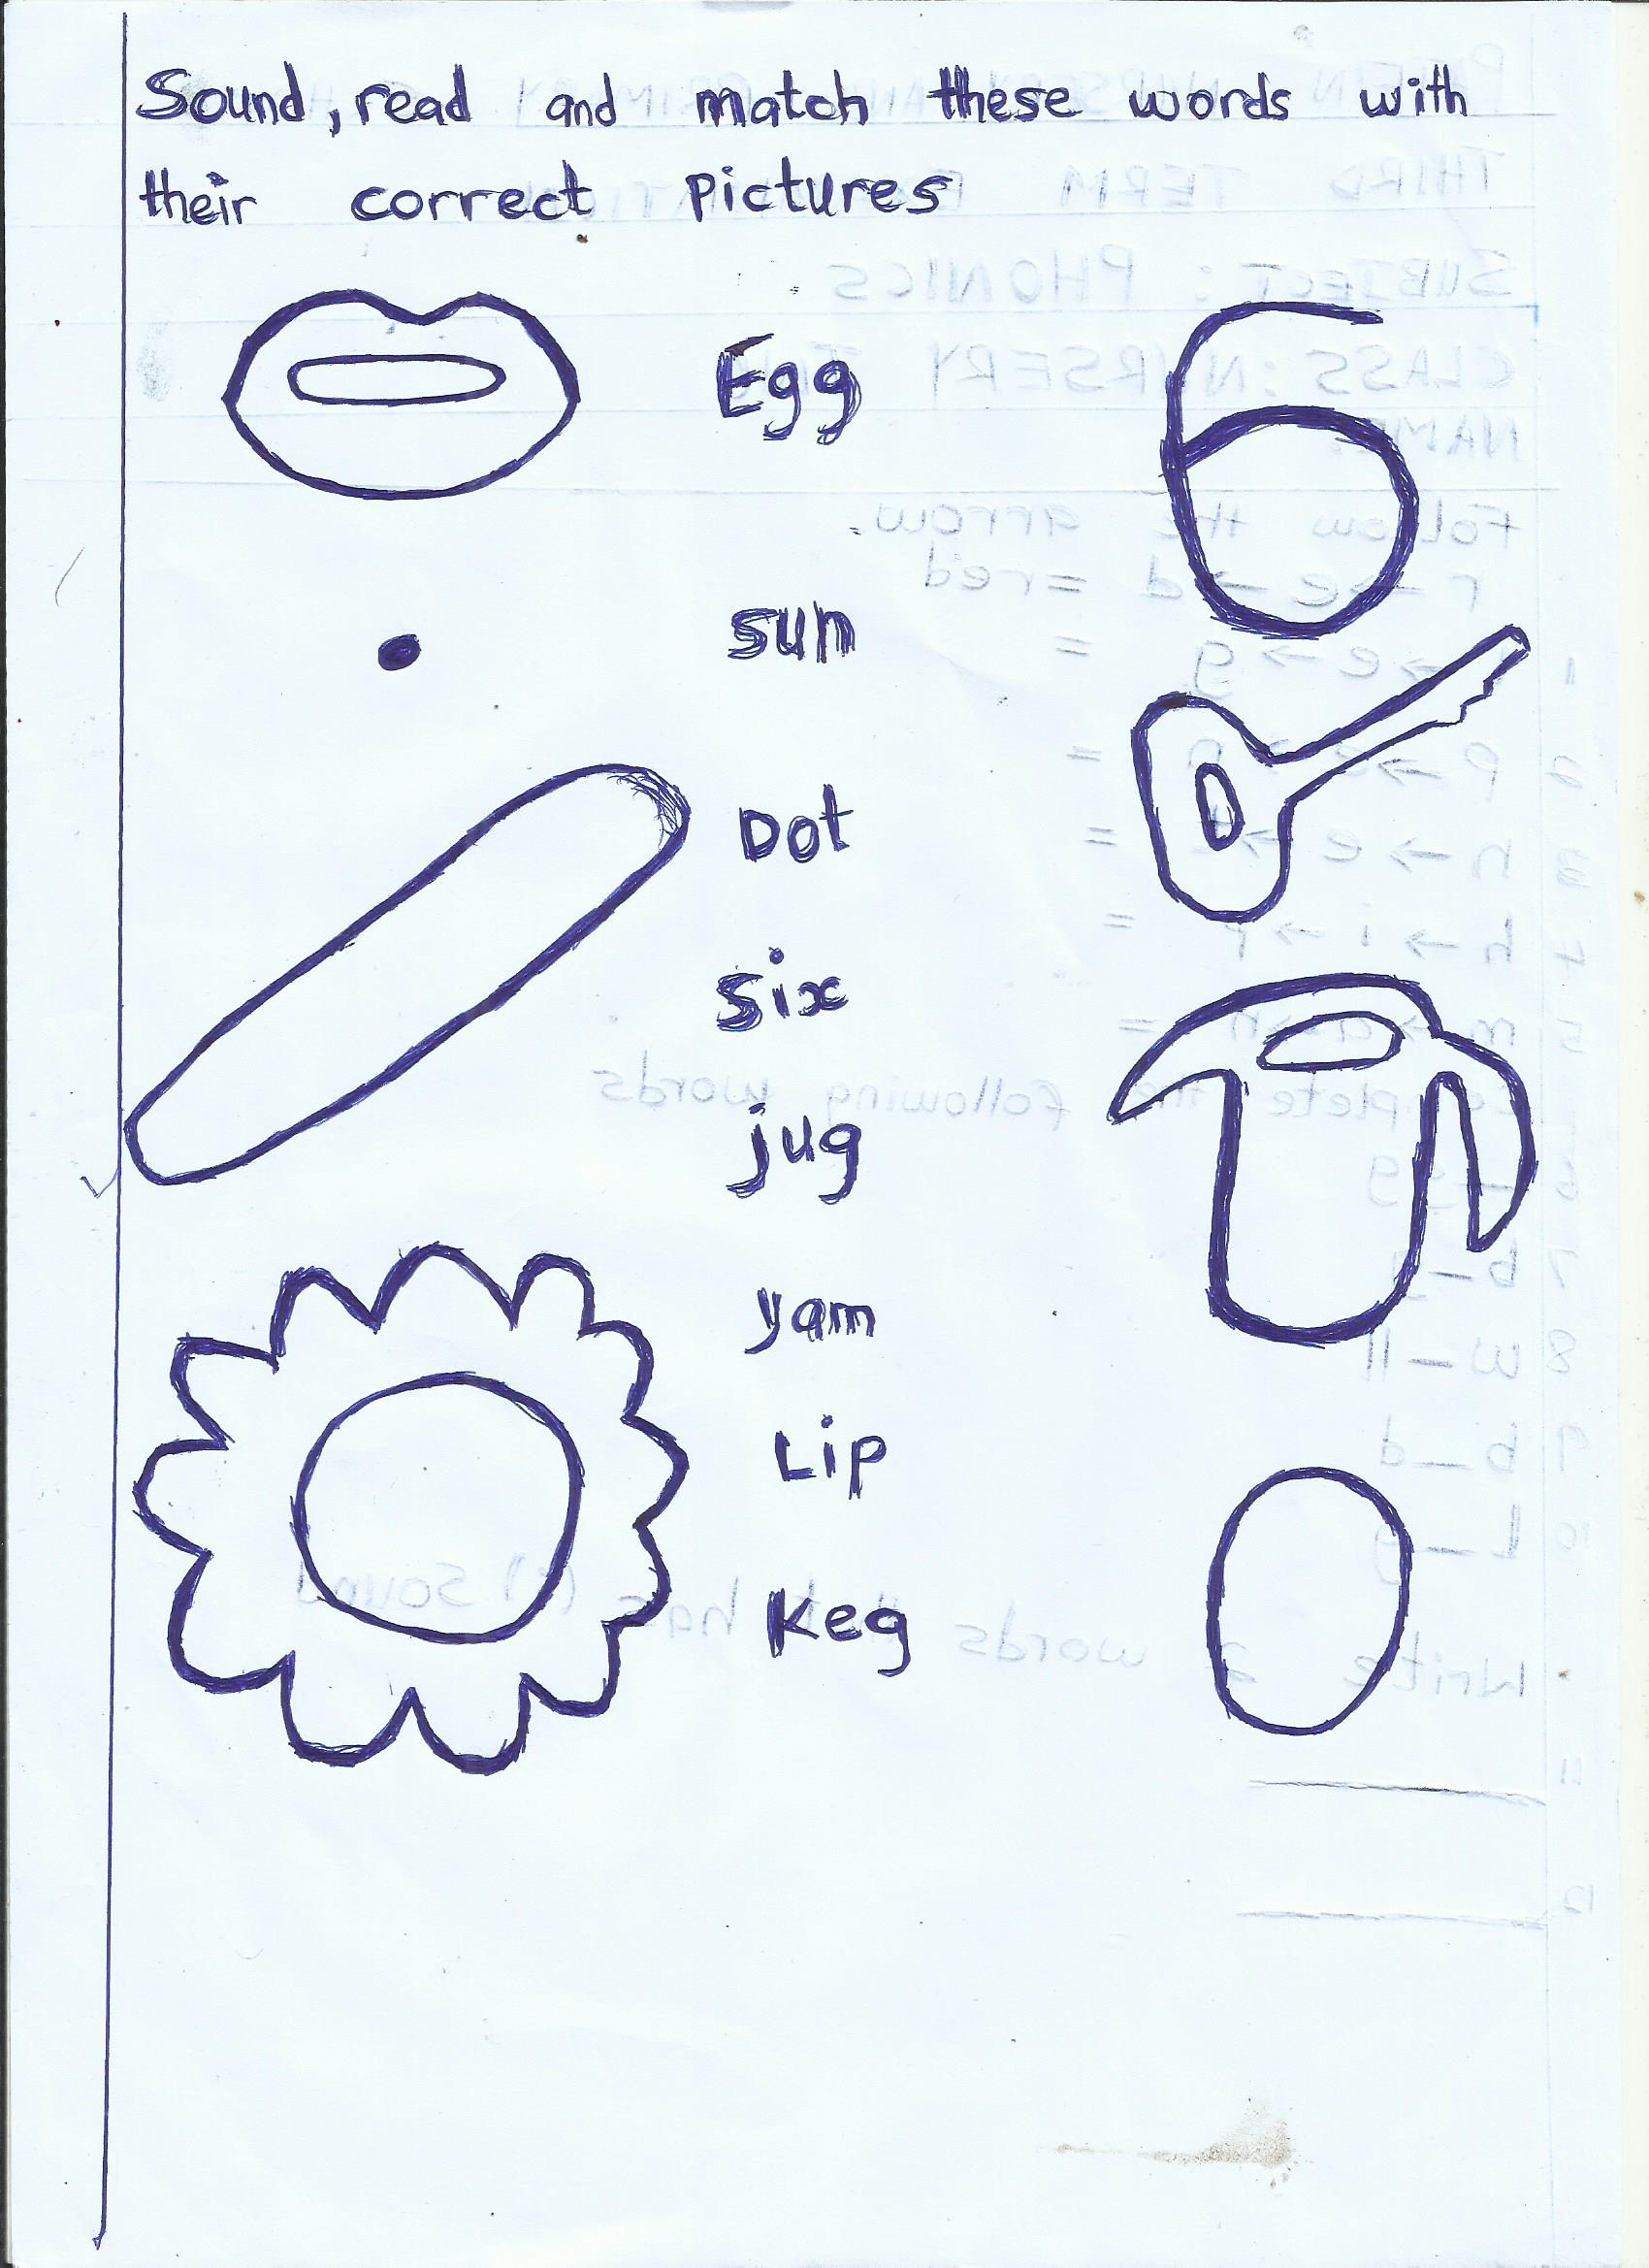 Sound, read and match these words with
their correct pictures
Egg
6
sun
Dot
six
jug
yam
Lip
Keg